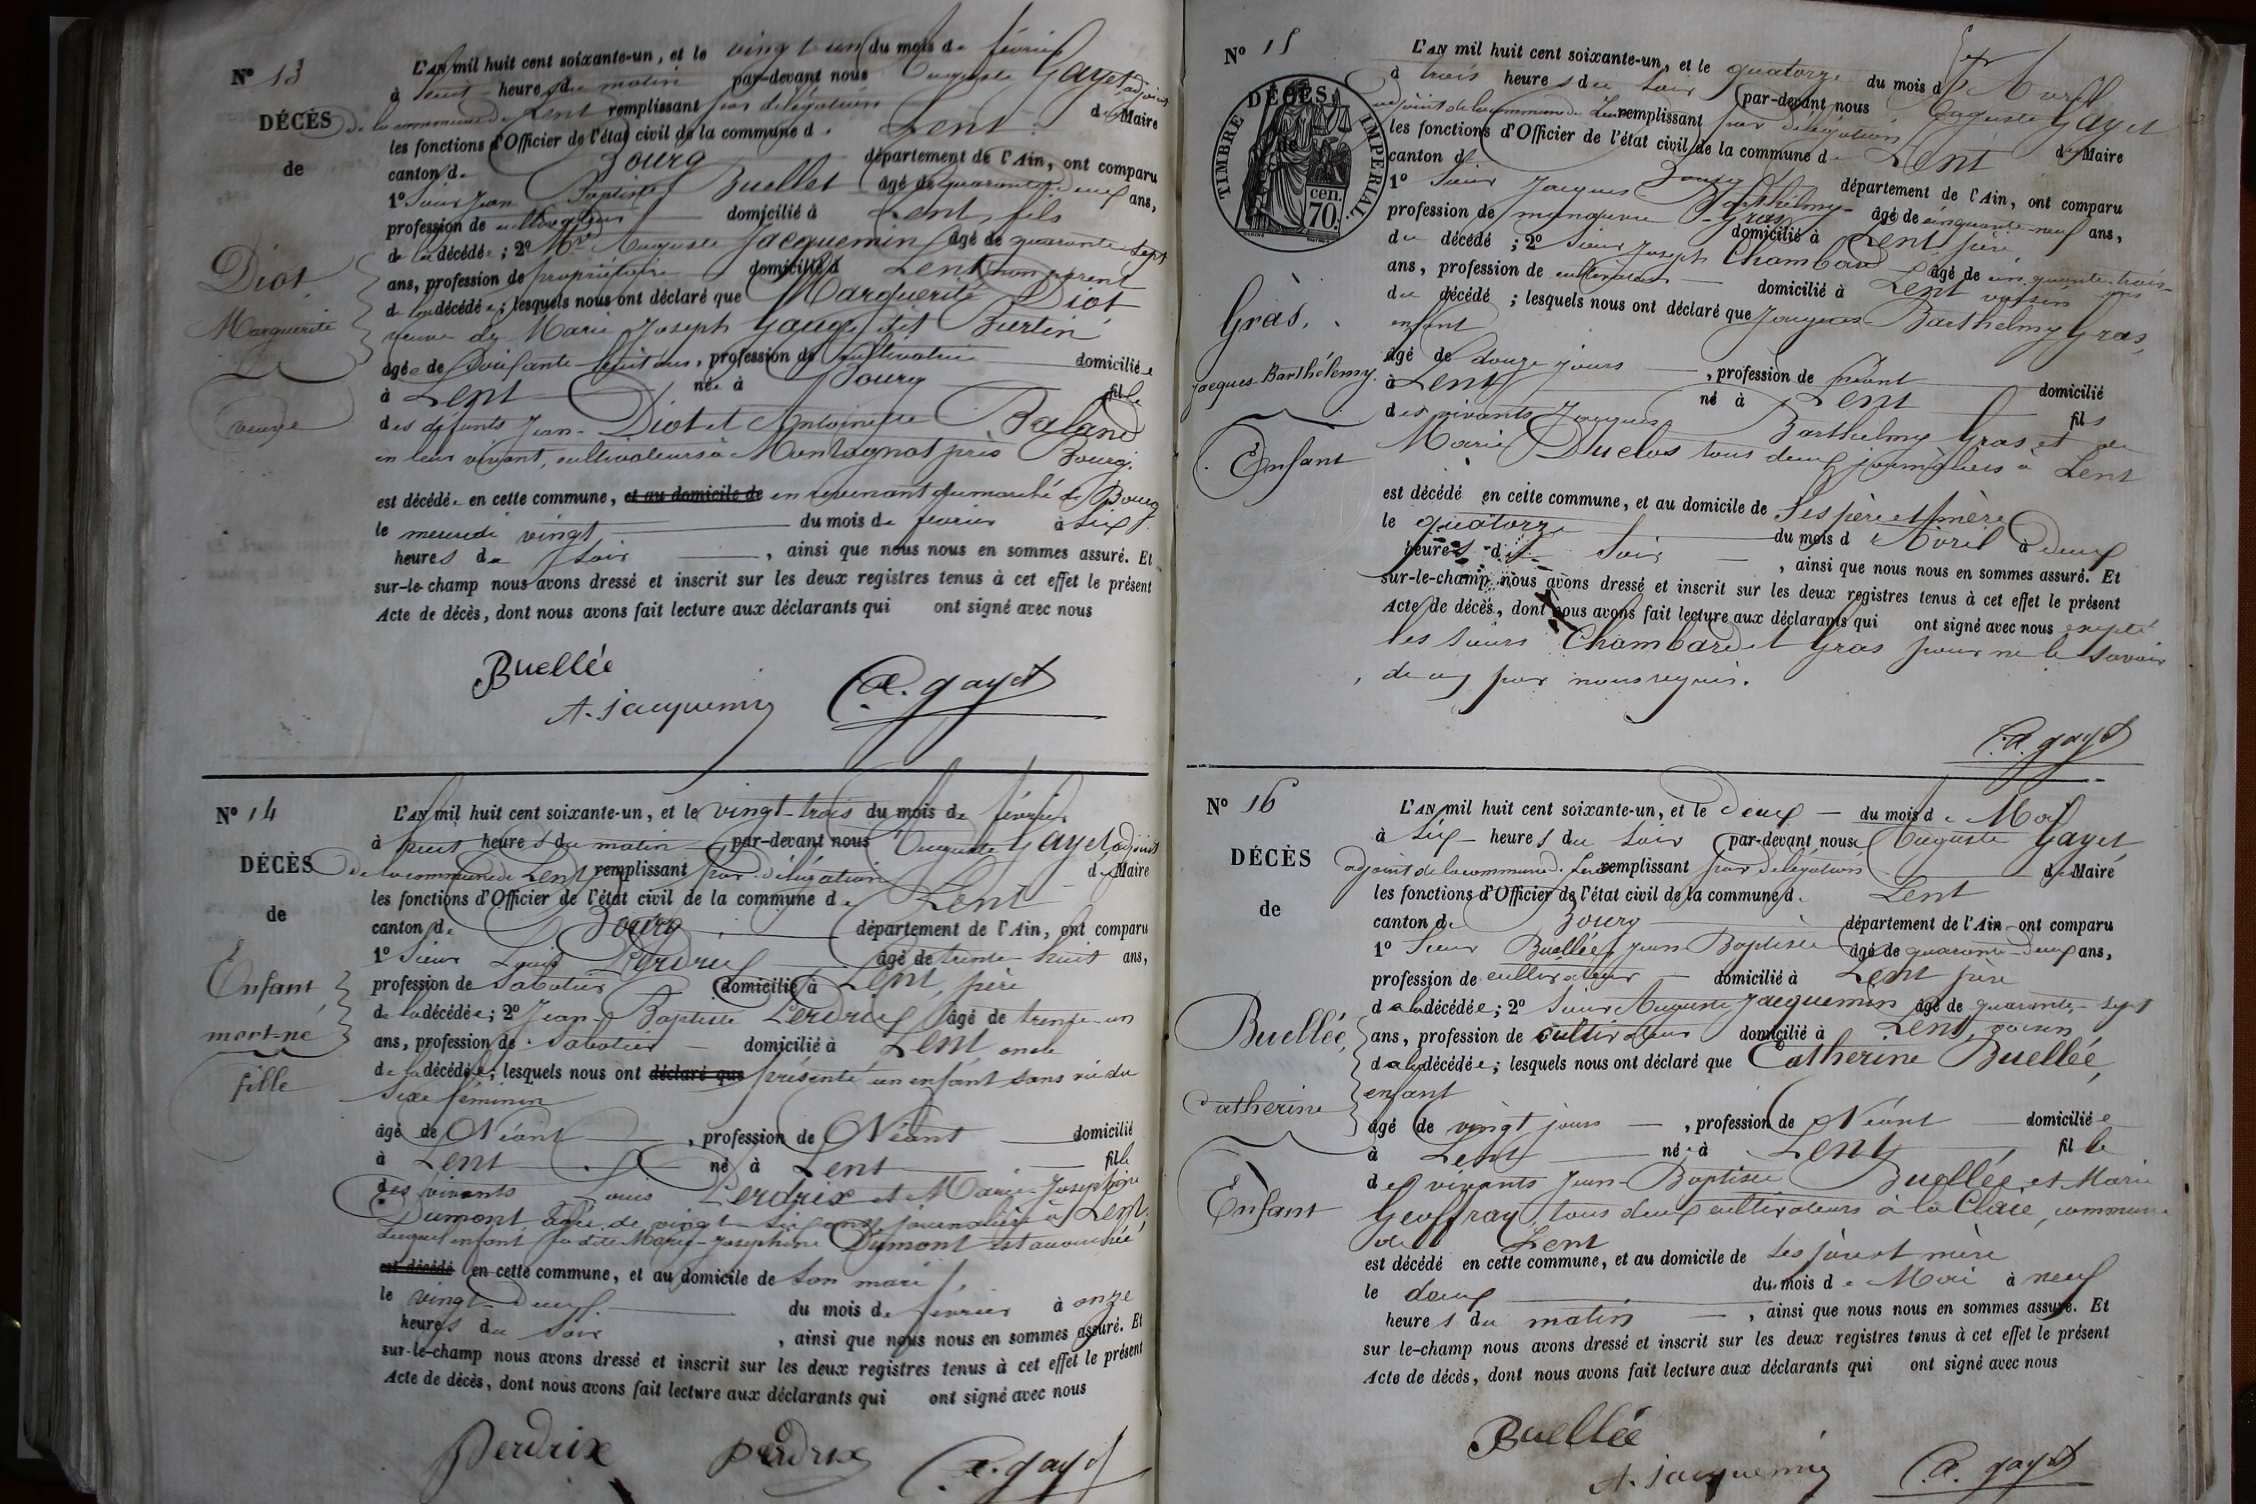 N° 13
DÉCÈS
de
Diot
Marguerite
veuve
L'AN mil huit cent soixante-un, et le vingt un du mois de février
à huit heures du matin par-devant nous Auguste Gayet adjoint
de la commune de Lent remplissant par délégation de Maire
les fonctions d'Officier de l'état civil de la commune de Lent
canton de Bourg département de l'Ain, ont comparu
1° Sieur Jean Baptiste Buellet âgé de quarante-deux ans,
profession de cultivateur domicilié à Lent, fils
de la décédée ; 2° Mr Auguste Jacquemin âgé de quarante-sept
ans, profession de propriétaire domicilié à Lent non parent
de la décédée ; lesquels nous ont déclaré que Marguerite Diot
veuve de Marie Joseph Gauge dit Burtin
âgée de soixante-huit ans, profession de cultivatrice domiciliée
à Lent née à Bourg fille
des défunts Jean Diot et Antoinette Baland
en leur vivant, cultivateurs à Montagnat près Bourg.
est décédée en cette commune, et au domicile de en revenant du marché de Bourg
le mercredi vingt du mois de février à six
heures du soir, ainsi que nous nous en sommes assuré. Et
sur-le-champ nous avons dressé et inscrit sur les deux registres tenus à cet effet le présent
Acte de décès, dont nous avons fait lecture aux déclarants qui ont signé avec nous
Buellée
A. Jacquemin A. gayet
N° 14
DÉCÈS
de
Enfant
mort-né
fille
L'AN mil huit cent soixante-un, et le vingt-trois du mois de février
à huit heures du matin par-devant nous Auguste Gayet adjoint
de la commune de Lent remplissant par délégation de Maire
les fonctions d'Officier de l'état civil de la commune de Lent
canton de Bourg département de l'Ain, ont comparu
1° Sieur Louis Perdrix âgé de trente-huit ans,
profession de sabotier domicilié à Lent, père
de la décédée ; 2° Jean-Baptiste Perdrix âgé de trente-un
ans, profession de sabotier domicilié à Lent oncle
de la décédée ; lesquels nous ont déclaré que présenté un enfant sans vie du
sexe féminin
âgé de Néant, profession de Néant domicilié
à Lent né à Lent fille
des vivants Louis Perdrix et Marie-Josephine
Dumont âgée de vingt-six ans journalière à Lent.
Lequel enfant la dite Marie-Josephine Dumont est accouchée
est décédé en cette commune, et au domicile de son mari
le vingt-deux du mois de février à onze
heures du soir, ainsi que nous nous en sommes assuré. Et
sur-le-champ nous avons dressé et inscrit sur les deux registres tenus à cet effet le présent
Acte de décès, dont nous avons fait lecture aux déclarants qui ont signé avec nous
Perdrix Perdrix A. gayet
N° 15
TIMBRE IMPERIAL.
70. cen.
DÉCÈS
de
Gras,
Jacques-Barthélemy.
Enfant
L'AN mil huit cent soixante-un, et le quatorze du mois d'Avril
à trois heures du soir par-devant nous Auguste Gayet
adjoint de la commune de Lent remplissant par délégation de Maire
les fonctions d'Officier de l'état civil de la commune de Lent
canton de Bourg département de l'Ain, ont comparu
1° Sieur Jacques Barthelmy Gras âgé de cinquante-neuf ans,
profession de manœuvre domicilié à Lent père
du décédé ; 2° Sieur Joseph Chambard âgé de cinquante-trois
ans, profession de cultivateur domicilié à Lent voisin
du décédé ; lesquels nous ont déclaré que Jacques Barthelmy Gras,
enfant
âgé de douze jours, profession de Néant domicilié
à Lent né à Lent fils
des vivants Jacques Barthelmy Gras et de
Marie Duclos tous deux journaliers à Lent
est décédé en cette commune, et au domicile de ses père et mère
le quatorze du mois d'Avril à deux
heures du soir, ainsi que nous nous en sommes assuré. Et
sur-le-champ nous avons dressé et inscrit sur les deux registres tenus à cet effet le présent
Acte de décès, dont nous avons fait lecture aux déclarants qui ont signé avec nous excepté
les sieurs Chambard et Gras pour ne le savoir
de ce par nous requis.
A. gayet
N° 16
DÉCÈS
de
Buellée,
Catherine
Enfant
L'AN mil huit cent soixante-un, et le deux du mois de Mai
à six heures du soir par-devant nous Auguste Gayet
adjoint de la commune de Lent remplissant par délégation de Maire
les fonctions d'Officier de l'état civil de la commune de Lent
canton de Bourg département de l'Ain, ont comparu
1° Sieur Buellée Jean Baptiste âgé de quarante-deux ans,
profession de cultivateur domicilié à Lent père
de la décédée ; 2° Sieur Auguste Jacquemin âgé de quarante-sept
ans, profession de cultivateur domicilié à Lent, voisin
de la décédée ; lesquels nous ont déclaré que Catherine Buellée,
enfant
âgé de vingt jours, profession de Néant domiciliée
à Lent née à Lent fille
des vivants Jean-Baptiste Buellée et Marie
Geoffray, tous deux cultivateurs à la Claie, commune
de Lent
est décédé en cette commune, et au domicile de ses père et mère
le deux du mois de Mai à neuf
heures du matin, ainsi que nous nous en sommes assuré. Et
sur le-champ nous avons dressé et inscrit sur les deux registres tenus à cet effet le présent
Acte de décès, dont nous avons fait lecture aux déclarants qui ont signé avec nous
Buellée
A. Jacquemin A. gayet